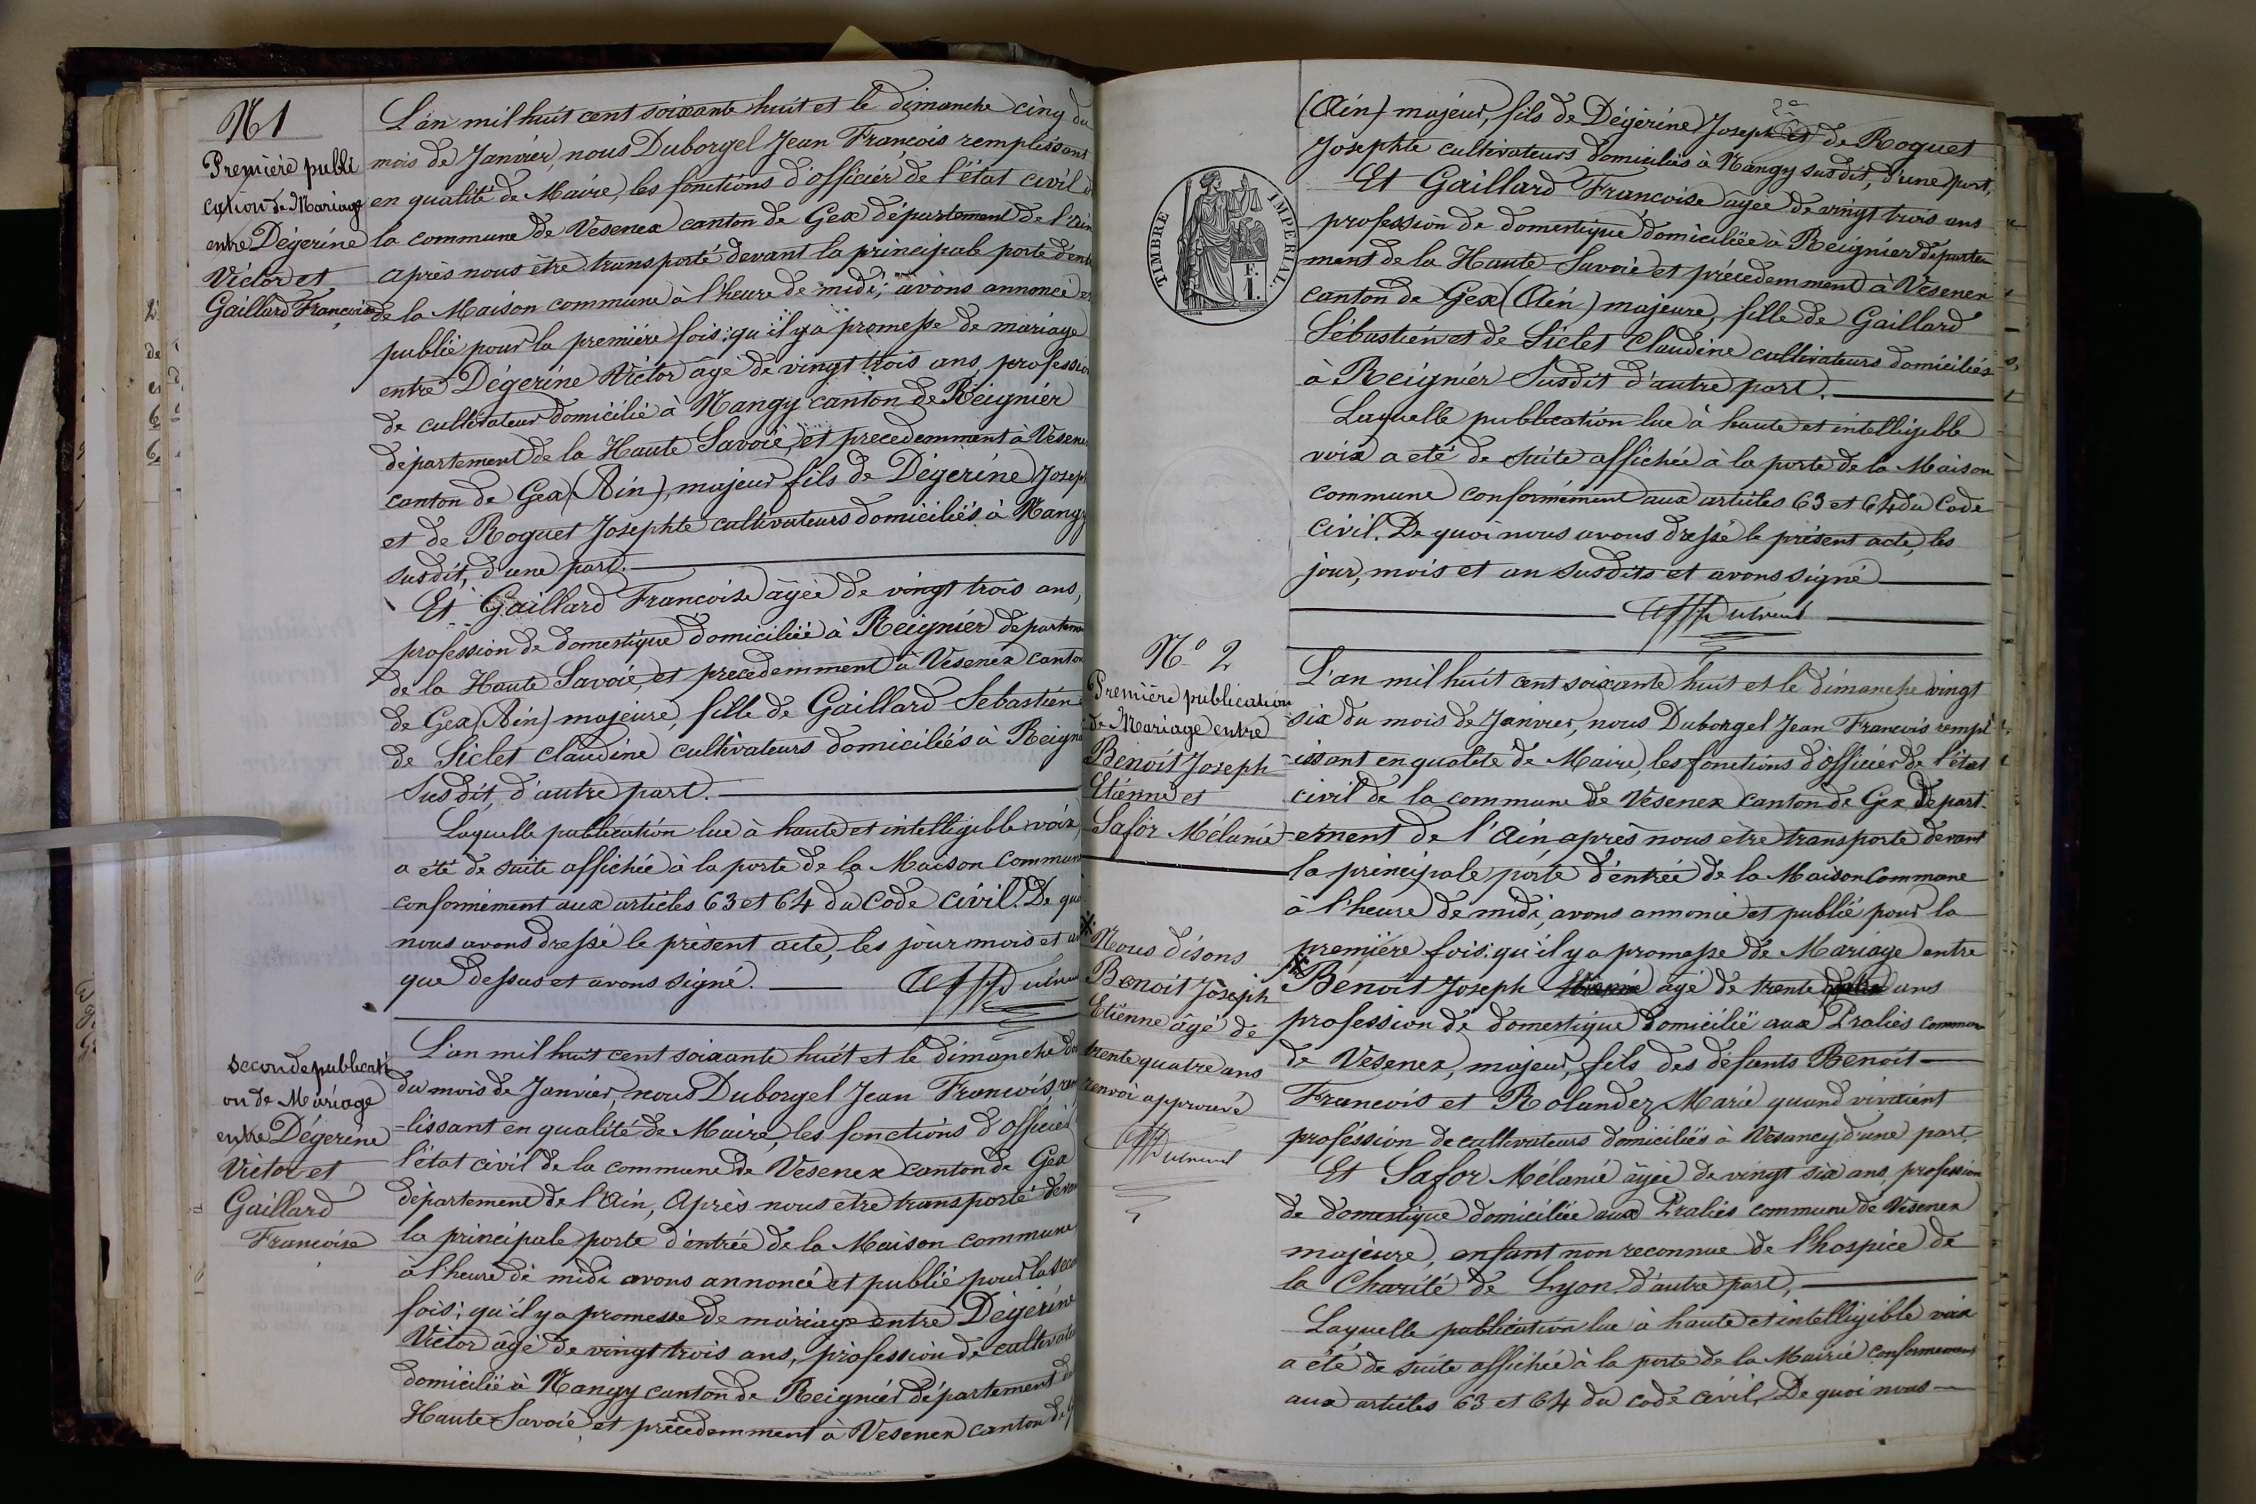 N 1
Première publi
cation de Mariage
entre Dégerine
Victor et
Gaillard Francoise
L'an mil huit cent soixante huit et le dimanche cinq du
mois de Janvier, nous Duborgel Jean François remplissant
en qualité de Maire, les fonctions d'officier de l'état civil
la commune de Vesenex canton de Gex département de l'Ain
après nous être transporté devant la principale porte d'ent
de la Maison commune à l'heure de midi; avons annoncé
publié pour la première fois: qu'il y a promesse de mariage
entre Dégerine Victor âgé de vingt trois ans, profession
de cultivateur domicilié à Nangy canton de Reignier
département de la Haute Savoie, et precedemment à Vesenex
canton de Gex (Ain), majeur fils de Dégerine Joseph
et de Roguet Josephte cultivateurs domiciliés à Nangy
susdit, d'une part.
Et Gaillard Francoise âgée de vingt trois ans,
profession de domestique domiciliée à Reignier departeme
de la Haute Savoie, et precedemment à Vesenex canton
de Gex (Ain) majeure, fille de Gaillard Sebastien
de Siclet Claudine cultivateurs domiciliés à Reign
susdit, d'autre part.
Laquelle publication lue à haute et intelligible voix,
a été de suite affichée à la porte de la Maison commune
conformement aux articles 63 et 64 du Code Civil. De quoi
nous avons dressé le présent acte, les jour mois et an
que dessus et avons signé.
seconde publicati
on de Mariage
entre Dégerine
Victor et
Gaillard
Francoise
L'an mil huit cent soixante huit et le dimanche
du mois de Janvier, nous Duborgel Jean Francois, rem
-lissant en qualité de Maire, les fonctions d'officier
l'état civil de la commune de Vesenex canton de Gex
département de l'Ain, Après nous être transporté devan
la principale porte d'entrée de la Maison commune
à l'heure de midi avons annoncé et publié pour la seco
fois; qu'il y a promesse de mariage entre Dégerine
Victor âgé de vingt trois ans, profession de cultivate
domicilié à Nangy canton de Reignier département de
Haute Savoie, et précedemment à Vesenex canton de G
(Ain) majeur, fils de Dégerine Joseph et de Roguet
Josephte cultivateurs domiciliés à Nangy susdit, d'une part,
Et Gaillard Francoise âgée de vingt trois ans
profession de domestique domiciliée à Reignier départe
ment de la Haute Savoie et précedemment à Vesenex
canton de Gex (Ain) majeure, fille de Gaillard
Sébastien et de Siclet Claudine cultivateurs domiciliés
à Reignier susdit d'autre part.
Laquelle publication lue à haute et intelligible
voix a été de suite affichée à la porte de la Maison
commune conformément aux articles 63 et 64 du Code
Civil. De quoi nous avons dressé le présent acte, les
jour, mois et an susdits et avons signé
TIMBRE IMPERIAL.
F.
1.
N° 2
Première publication
de Mariage entre
Benoit Joseph
Etienne et
Safor Mélanie
L'an mil huit cent soixante huit et le dimanche vingt
six du mois de Janvier, nous Duborgel Jean Francois rempl
-issant en qualité de Maire, les fonctions d'officier de l'état
civil de la commune de Vesenex canton de Gex Départ-
-ement de l'Ain après nous être transporté devant
la principale porte d'entrée de la Maison Commune
à l'heure de midi, avons annoncé et publié pour la
première fois: qu'il y a promesse de Mariage entre
Benoit Joseph Etienne agé de trente ans
profession de domestique domicilié aux Pralies commune
de Vesenex, majeur, fils des défunts Benoit
Francois et Rolandez Marie quand vivaient
profession de cultivateurs domiciliés à Vesancy, d'une part,
Et Safor Mélanie âgée de vingt six ans, profession
de domestique domiciliée aux Pralies commune de Vesenex
majeure, enfant non reconnue de l'hospice de
la Charité de Lyon, d'autre part,
Laquelle publication lue à haute et intelligible voix
a été de suite affichée à la porte de la Mairie conformement
aux articles 63 et 64 du code civil, De quoi nous
Nous disons
Benoit Joseph
Etienne âgé de
trente quatre ans
renvoi approuvé